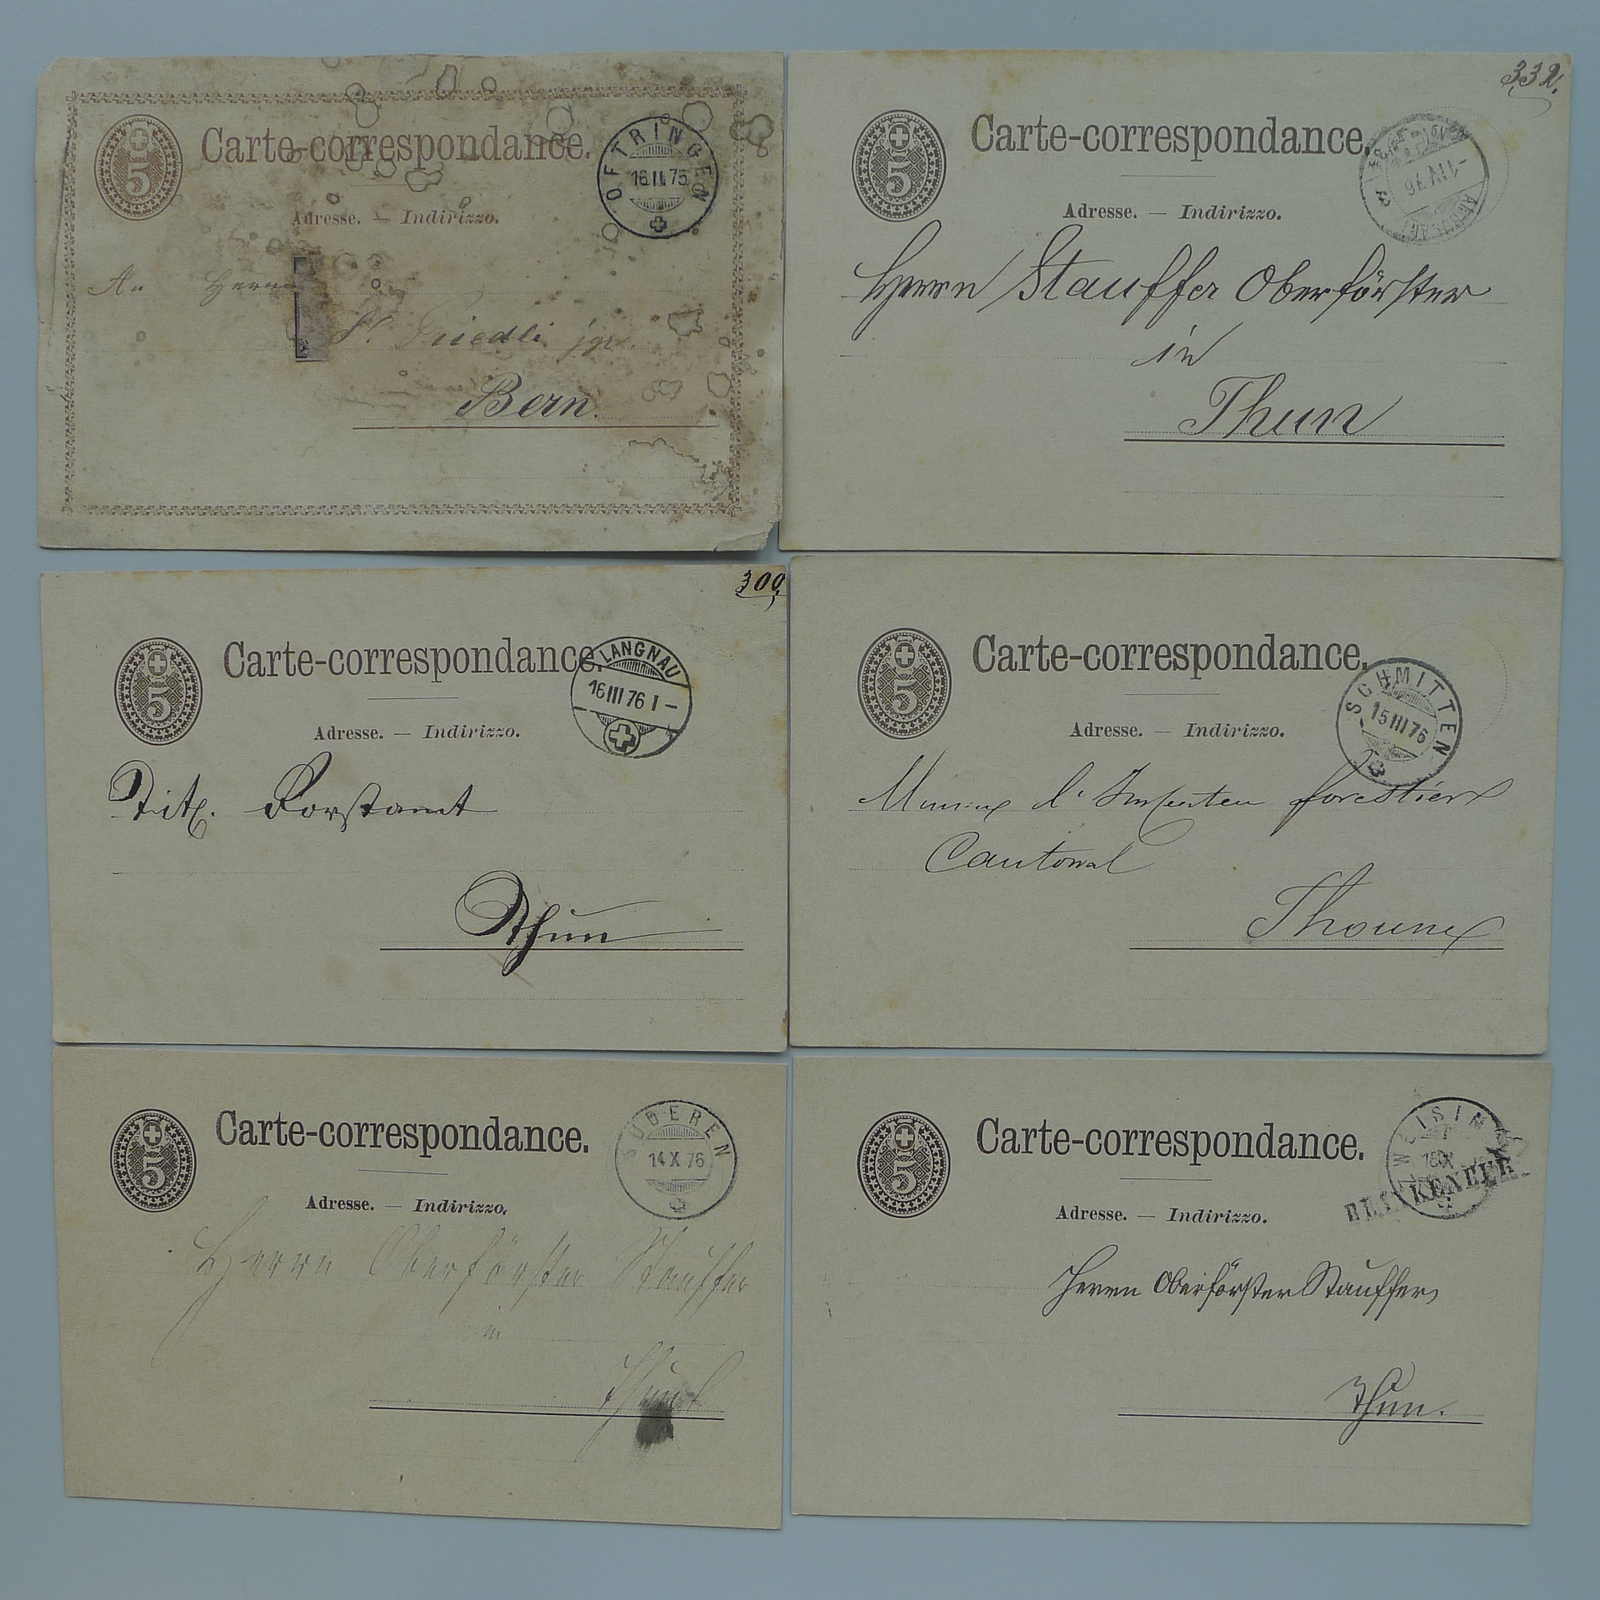 5
Carte-correspondance.
OFTRINGEN
16.II.75
Adresse. — Indirizzo.
An Herrn
Friedli jgr.
Bern.
332.
5
Carte-correspondance.
Adresse. — Indirizzo.
Herrn Stauffer Oberförster
in
Thun
300.
5
Carte-correspondance.
LANGNAU
16 III 76 I –
Adresse. — Indirizzo.
Titl. Forstamt
Thun
5
Carte-correspondance.
SCHMITTEN
15 III 76
Adresse. — Indirizzo.
forestier
Cantonal
Thoune
5
Carte-correspondance.
SÜDEREN
14 X 76
Adresse. — Indirizzo.
Herrn Oberförster Stauffer
in
Thun
5
Carte-correspondance.
BLANKENBURG
Adresse. — Indirizzo.
Herrn Oberförster Stauffer
Thun.